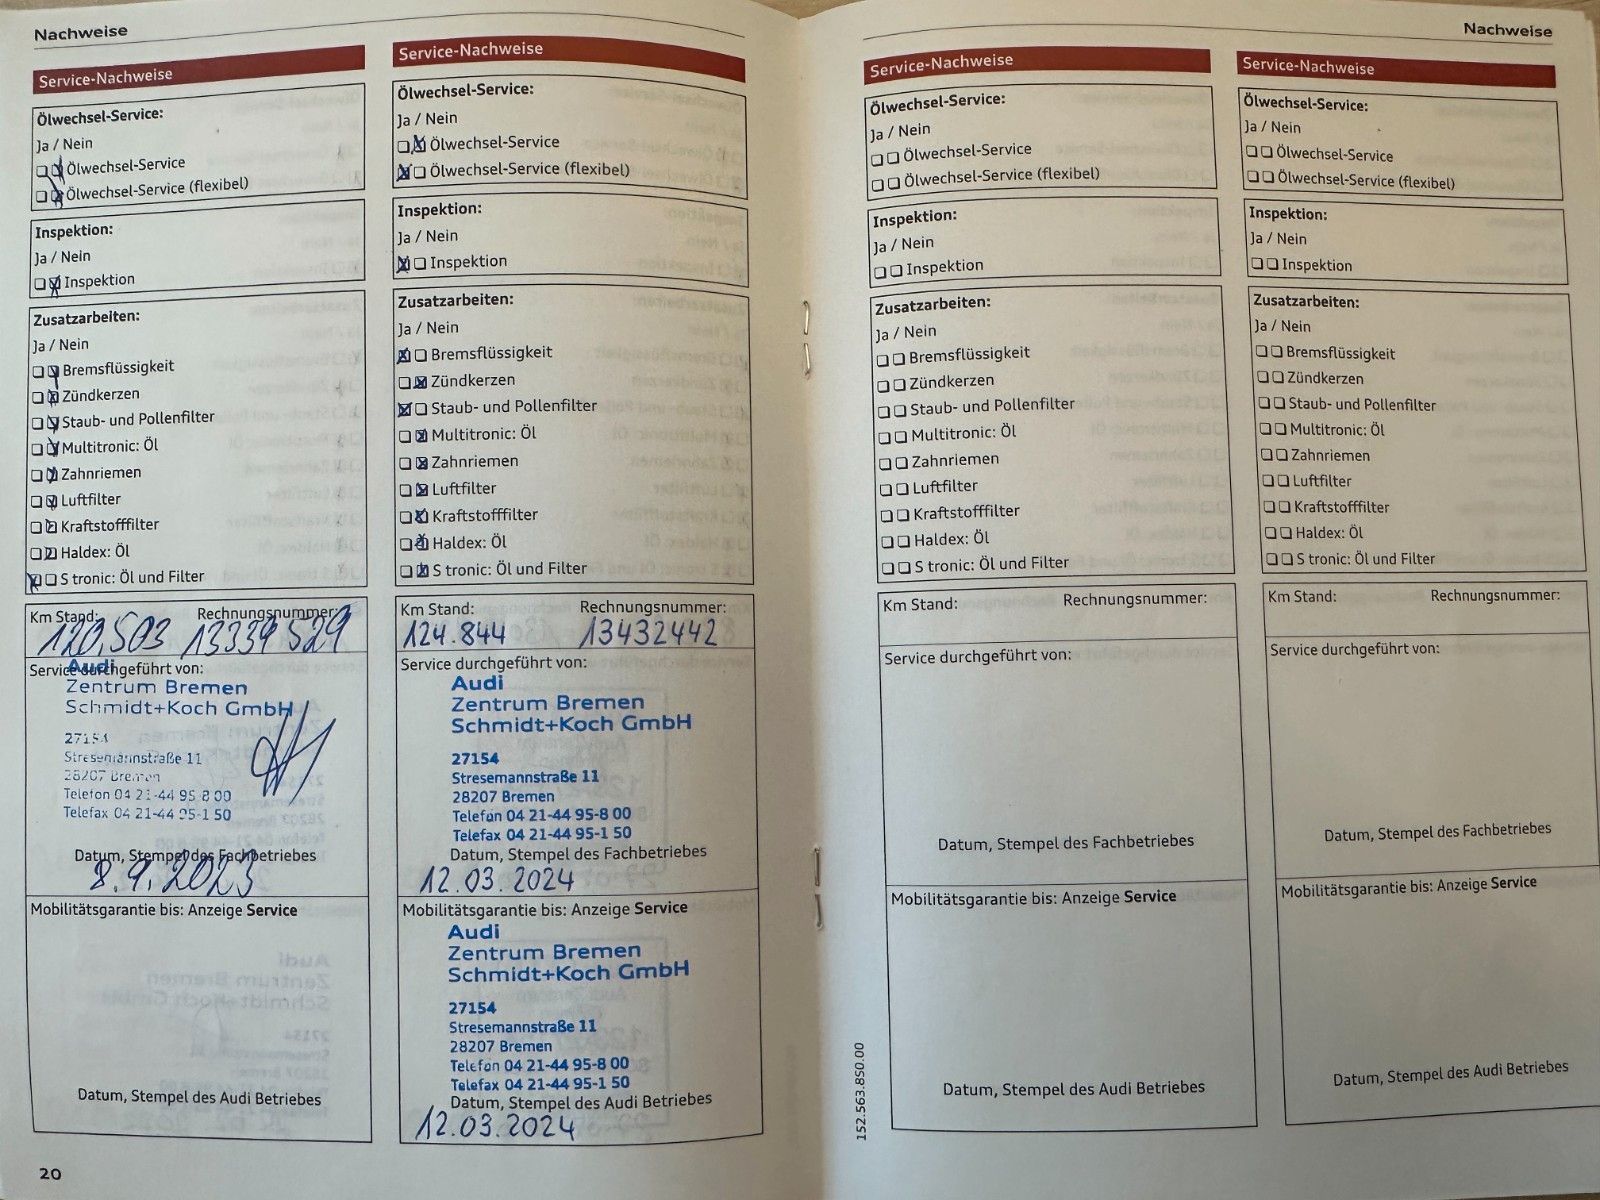 Nachweise
Service-Nachweise
Ölwechsel-Service:
Ja / Nein
Ölwechsel-Service
Ölwechsel-Service (flexibel)
Inspektion:
Ja / Nein
Inspektion
Zusatzarbeiten:
Ja / Nein
Bremsflüssigkeit
Zündkerzen
Staub- und Pollenfilter
Multitronic: Öl
Zahnriemen
Luftfilter
Kraftstofffilter
Haldex: Öl
S tronic: Öl und Filter
Km Stand: Rechnungsnummer:
120.503 13339529
Service durchgeführt von:
Audi
Zentrum Bremen
Schmidt+Koch GmbH
27154
Stresemannstraße 11
28207 Bremen
Telefon 04 21-44 95-8 00
Telefax 04 21-44 95-1 50
Datum, Stempel des Fachbetriebes
8.9.2023
Mobilitätsgarantie bis: Anzeige Service
Datum, Stempel des Audi Betriebes
20
Service-Nachweise
Ölwechsel-Service:
Ja / Nein
Ölwechsel-Service
Ölwechsel-Service (flexibel)
Inspektion:
Ja / Nein
Inspektion
Zusatzarbeiten:
Ja / Nein
Bremsflüssigkeit
Zündkerzen
Staub- und Pollenfilter
Multitronic: Öl
Zahnriemen
Luftfilter
Kraftstofffilter
Haldex: Öl
S tronic: Öl und Filter
Km Stand: Rechnungsnummer:
124.844 13432442
Service durchgeführt von:
Audi
Zentrum Bremen
Schmidt+Koch GmbH
27154
Stresemannstraße 11
28207 Bremen
Telefon 04 21-44 95-8 00
Telefax 04 21-44 95-1 50
Datum, Stempel des Fachbetriebes
12.03.2024
Mobilitätsgarantie bis: Anzeige Service
Audi
Zentrum Bremen
Schmidt+Koch GmbH
27154
Stresemannstraße 11
28207 Bremen
Telefon 04 21-44 95-8 00
Telefax 04 21-44 95-1 50
Datum, Stempel des Audi Betriebes
12.03.2024
Nachweise
Service-Nachweise
Ölwechsel-Service:
Ja / Nein
Ölwechsel-Service
Ölwechsel-Service (flexibel)
Inspektion:
Ja / Nein
Inspektion
Zusatzarbeiten:
Ja / Nein
Bremsflüssigkeit
Zündkerzen
Staub- und Pollenfilter
Multitronic: Öl
Zahnriemen
Luftfilter
Kraftstofffilter
Haldex: Öl
S tronic: Öl und Filter
Km Stand: Rechnungsnummer:
Service durchgeführt von:
Datum, Stempel des Fachbetriebes
Mobilitätsgarantie bis: Anzeige Service
Datum, Stempel des Audi Betriebes
152.563.850.00
Service-Nachweise
Ölwechsel-Service:
Ja / Nein
Ölwechsel-Service
Ölwechsel-Service (flexibel)
Inspektion:
Ja / Nein
Inspektion
Zusatzarbeiten:
Ja / Nein
Bremsflüssigkeit
Zündkerzen
Staub- und Pollenfilter
Multitronic: Öl
Zahnriemen
Luftfilter
Kraftstofffilter
Haldex: Öl
S tronic: Öl und Filter
Km Stand: Rechnungsnummer:
Service durchgeführt von:
Datum, Stempel des Fachbetriebes
Mobilitätsgarantie bis: Anzeige Service
Datum, Stempel des Audi Betriebes